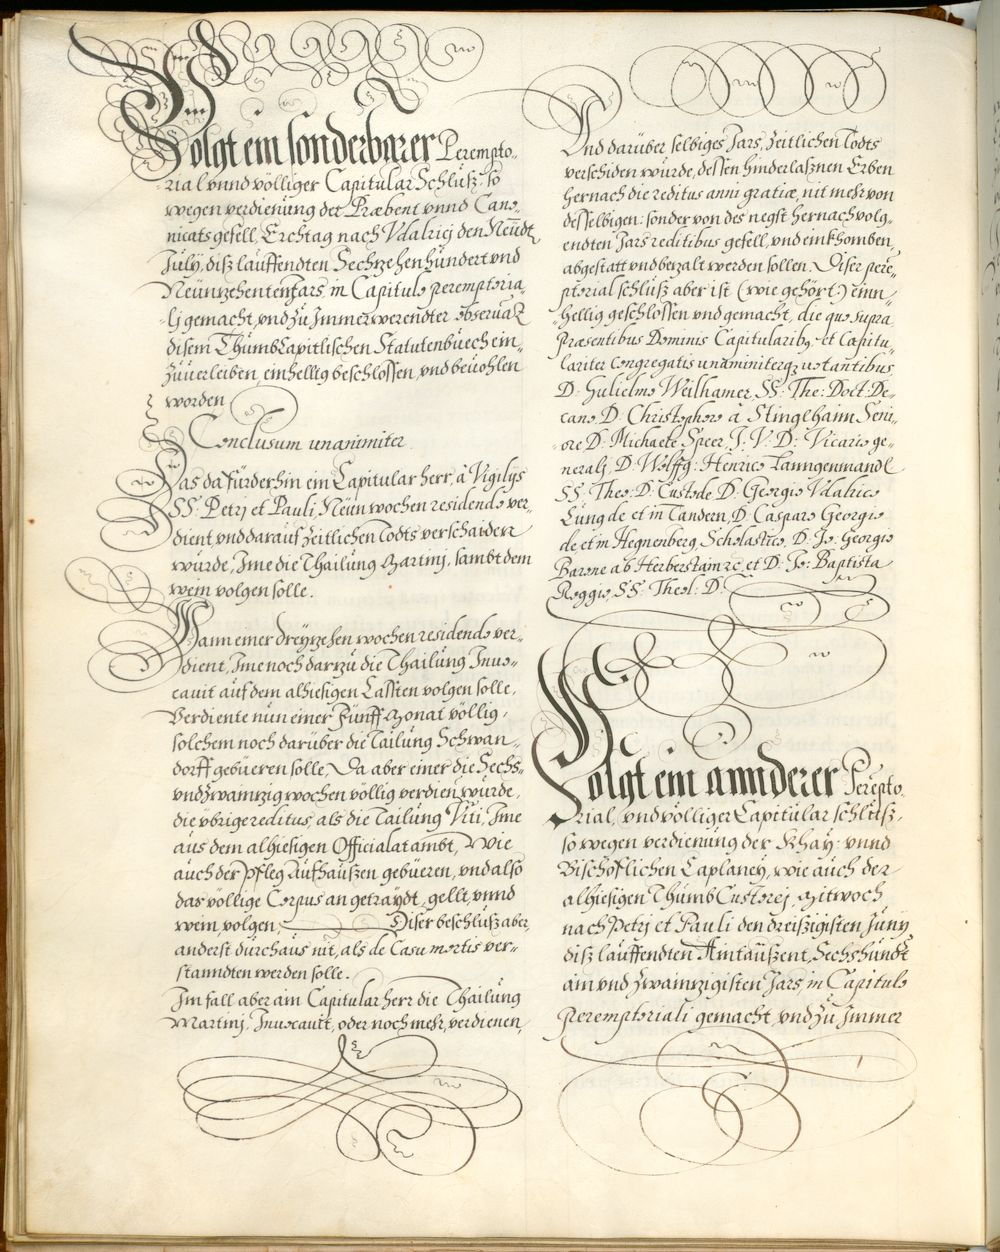 Volgt ein sonderbarer Perempto„
rial vnnd völliger Capitular Schlúß: so
wegen verdienúng der Præbent vnnd Cano„
nicats gefell, Erchtag nach Vdalricj den Neúdt
July, diß laúffendten Sechzehenhúndert vnd
Neúnzehenten Jars, in Capitulo peremptoria„
lj gemacht, vnd zú Jmmerwerendter obseruaz
disem Thúmbcapitlischen Statutenbúech ein„
zúuerleiben, einhellig beschlossen, vnd beúohlen
worden
Conclusum unanimiter.
Das da fúrderhin ein Capitular herr, à Vigilys
SS. Petrj et Pauli Neún wochen residendo ver„
dient vnd daraúf Zeitlichen Todts verschaiden
wúrde, Jme die Thailúng Martinj, sambt dem
wein volgen solle.
Wann einer dreyzehen wochen residendo ver„
dient, Jme noch darzú die Thailúng Inuo„
cauit aúf dem alhiesigen Cassten volgen solle,
Verdiente nún einer Fúnff Monat völlig,
solchem noch darüber die Tailúng Schwan„
dorff gebüeren solle, Da aber einer die Sechs„
vnd zwainzig wochen völlig verdien wúrde,
die vbrige reditus, als die Tailúng Viti, Jme
aús dem alhiesigen Officialat ambt, Wie
aúch der Pfleg Aúfhaúßen gebüeren, vnd also
das völlige Corpus an getraydt, gellt, vnnd
wein volgen, Diser beschlúß aber
anderst dúrchaús nit, als de Casu mortis ver„
standten werden solle.
Im fall aber ain Capitular herr die Thailúng
Martinj, Inuocauit, oder noch mehr, verdienen,
Vnd darüber selbiges Jars, Zeitlichen Todts
verschiden würde, dessen hinderlaßnen Erben
hernach die reditus anni gratiæ, nit mehr von
desselbigen: sonder von des negst hernach volg„
endten Jars reditibus gefell, vnd einkhomben,
abgestatt vnd bezalt werden sollen. Diser pere„
ptorial schlúß aber ist (wie gehört:) einn„
hellig geschlossen vnd gemacht, die quo supra
Præsentibus Dominis Capitularibq et Capitu„
lariter congregatis unanimiterqz uotantibus
D. Gulielmo Weilhamer, SS: The: Doct: De„
cano, D. Christophoro à Stinglhaim Seni„
ore D. Michaele Speer, J. V. D: Vicario ge„
neralj, D. Wolffg: Henrico Tanngenmandl
SS: Theo: D: Custode D: Georgio Vdalrico
Lúng de et in Tandern, D. Casparo Georgio
de et in Hegnenberg, Scholastico, D. Jo: Georgio
Barone ab Herberstain zc, et D. Jo: Baptista
Roggio, SS. Theol: D:
Volgt ein annderer Perepto„
rial, vnd völliger Capitular schlúß,
so wegen verdienúng der Khay: vnnd
Bischöflichen Caplaney, wie aúch der
alhiesigen Thúmb Custorej, Mitwoch
nach Petrj et Pauli den dreißigisten Júny,
diß laúffendten Aintaúßent, Sechshúndt
ain vnd zwainzigisten Jars, in Capitulo
peremptoriali gemacht, vnd zú Jmmer